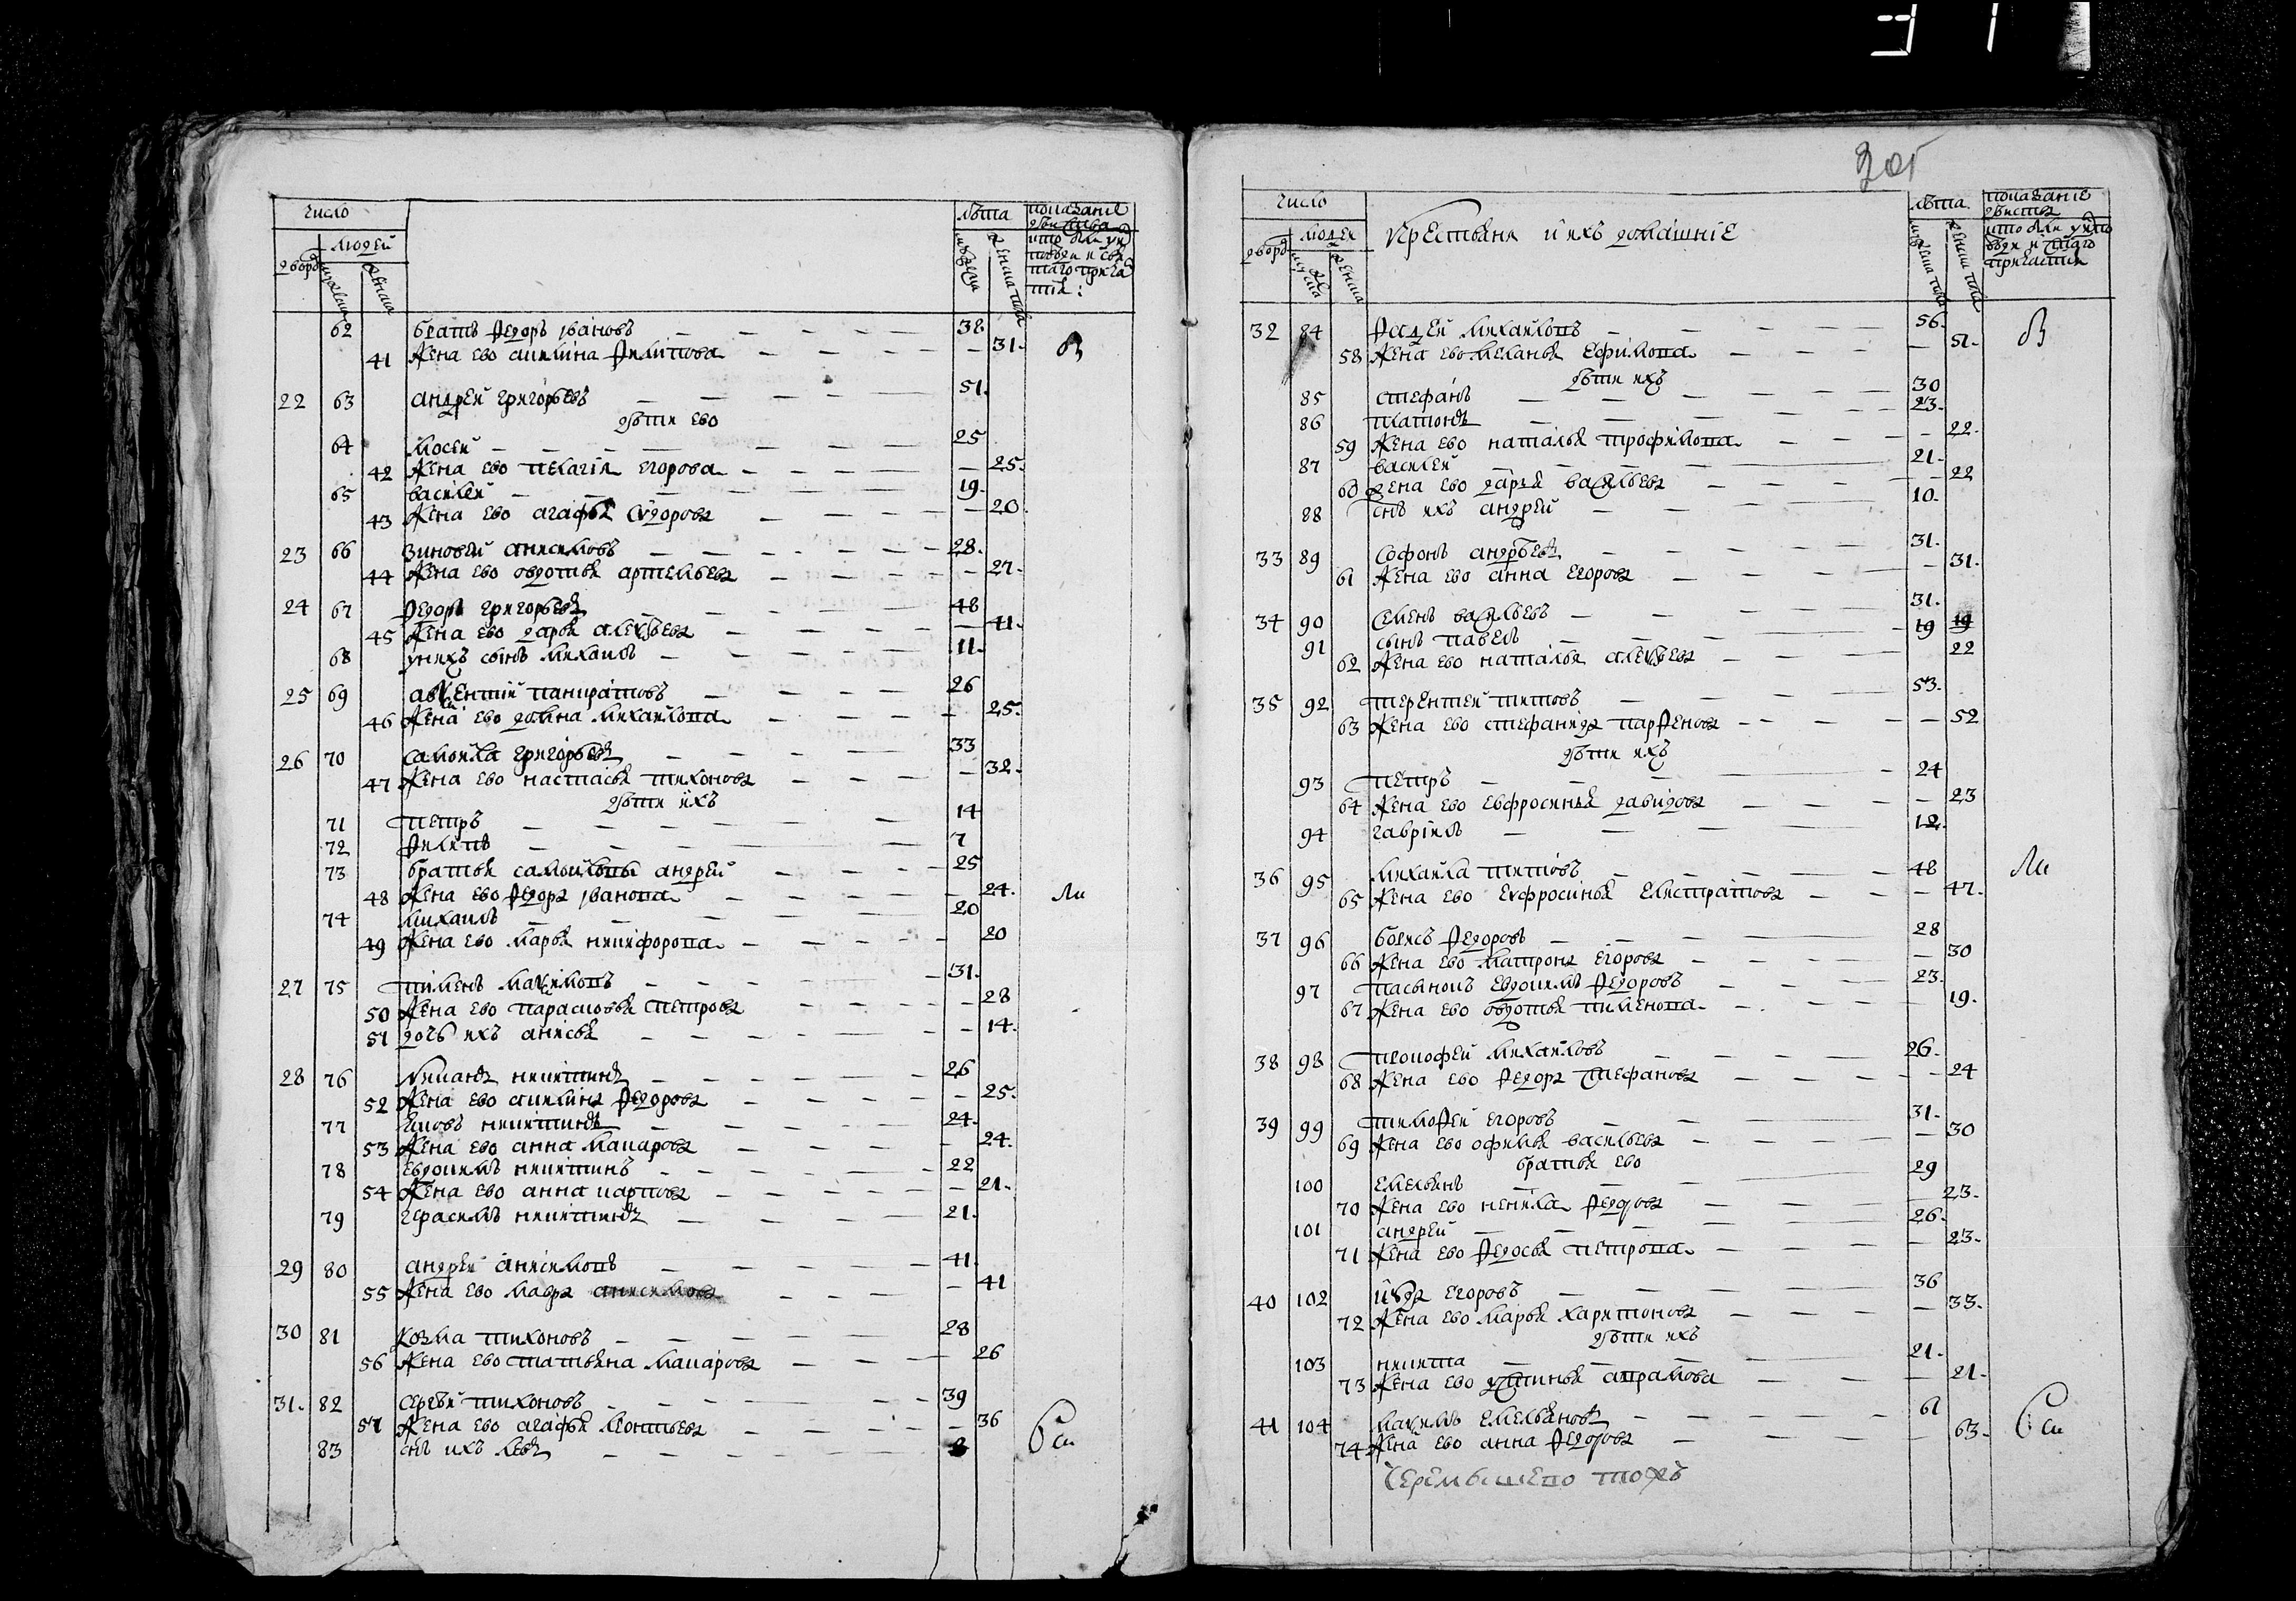 число
лѣта
людей
дворъ
62 братъ Ѳедоръ ивановъ 32
41 жена ево акилина Ѳилипова 31
22 63 андрей григорьевъ 51
дѣти ево
64 мосей 25
42 жена ево пелагія егорова 25
65 василей 19
43 жена ево агафья сидорова 20
23 66 зиновей анисимовъ 28
44 жена ево овдотья артемьева 27
24 67 Ѳедоръ григорьевъ 48
45 жена ево дарья алексѣева 41
68 у нихъ сынъ михаилъ 11
25 69 авксентій панкратовъ 26
46 жена ево домна михайлова 25
26 70 самойла григорьевъ 33
47 жена ево настасья тихонова 32
дѣти ихъ
71 петръ 14
72 Ѳилипъ 7
73 братья самойловы андрей 25
48 жена ево Ѳедора иванова 24
74 михаилъ 20
49 жена ево марья никифорова 20
27 75 пименъ максимовъ 31
50 жена ево парасковья петрова 28
51 дочь ихъ анисья 14
28 76 никитинъ 26
52 жена ево акилина Ѳедорова 25
77 никитинъ 24
53 жена ево анна макарова 24
78 евдокимъ никитинъ 22
54 жена ево анна карпова 21
79 герасимъ никитинъ 21
29 80 андрей анисимовъ 41
55 жена ево мавра анисимова 41
30 81 козма тихоновъ 28
56 жена ево татьяна макарова 26
31 82 сергѣй тихоновъ 39
57 жена ево агафья леонтьева 36
83 снъ ихъ левъ 8
число
крестьяня и ихъ домашніе
лѣта
людей
дворъ
32 84 Ѳадей михайловъ 56
58 жена ево меланья ефимова 51
дѣти ихъ
85 стефанъ 30
86 платонъ 23
59 жена ево наталья трофимова 22
87 василей 21
60 жена ево дарья васильева 22
88 снъ ихъ андрей 10
33 89 софонъ андрѣевъ 31
61 жена ево анна егорова 31
34 90 семенъ васильевъ 31
91 сынъ павелъ 19 19
62 жена ево наталья алексѣева 22
35 92 терентей титовъ 53
63 жена ево стефанида парѲенова 52
дѣти ихъ
93 петръ 24
64 жена ево евфросинья давидова 23
94 гавріилъ 12
36 95 михайла титовъ 48
65 жена ево евфросинья елистратова 47
37 96 борисъ Ѳедоровъ 28
66 жена ево матрона егорова 30
97 пасынокъ евдокимъ Ѳедоровъ 23
67 жена ево овдотья пименова 19
38 98 прокофей михайловъ 26
68 жена ево Ѳедора стефанова 24
39 99 тимоѲей егоровъ 31
69 жена ево офимья васильева 30
братья ево
100 емельянъ 29
70 жена ево ненила Ѳедорова 23
101 андрей 26
71 жена ево Ѳедосья петрова 23
40 102 иуда егоровъ 36
72 жена ево марья харитонова 33
дѣти ихъ
103 никита 21
73 жена ево устинья апрамова 21
41 104 максимъ емельяновъ 61
74 жена ево анна Ѳедорова 63